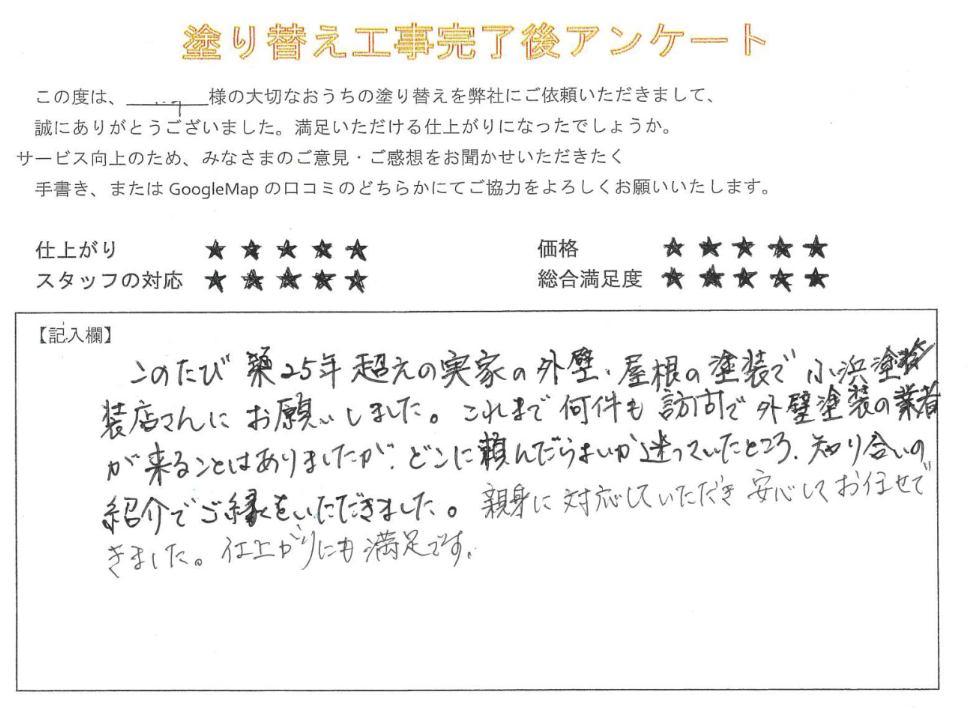 塗り替え工事完了後アンケート
この度は、様の大切なおうちの塗り替えを弊社にご依頼いただきまして、
誠にありがとうございました。満足いただける仕上がりになったでしょうか。
サービス向上のため、みなさまのご意見・ご感想をお聞かせいただきたく
手書き、または GoogleMap の口コミのどちらかにてご協力をよろしくお願いいたします。
仕上がり ★★★★★ 価格 ★★★★★
スタッフの対応 ★★★★★ 総合満足度 ★★★★★
【記入欄】
このたび 築25年超えの実家の外壁・屋根の塗装で 小浜塗
装店さんに お願いしました。これまで 何件も 訪問で 外壁塗装の業者
が 来ることはありましたが、どこに頼んだらよいか迷っていたところ、知り合いの
紹介でご縁をいただきました。親身に対応していただき 安心してお任せで
きました。仕上がりにも満足です。